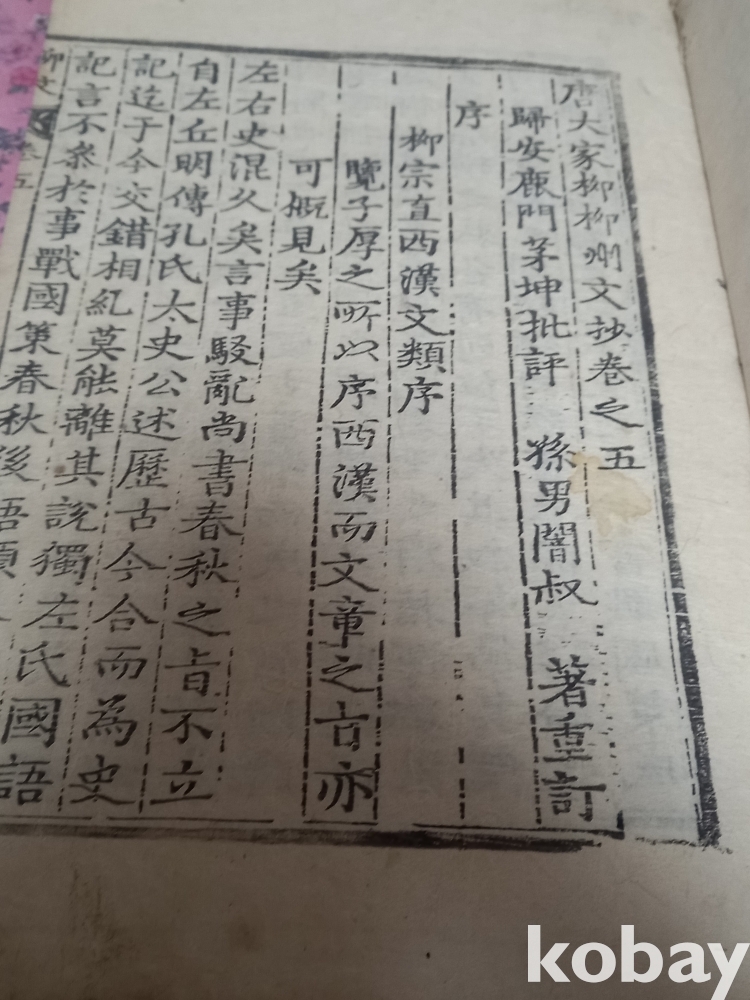 唐大家柳柳州文抄卷之五
歸安鹿門茅坤批評 孫男闇叔 著重訂
序
柳宗直西漢文類序
覽子厚之所以序西漢而文章之旨亦
可概見矣
左右史混久矣言事駁亂尚書春秋之旨不立
自左丘明傳孔氏太史公述歷古今合而為史
記迄于今交錯相糺莫能離其說獨左氏國語
記言不叅於事戰國策春秋後語
柳文 卷五
kobay